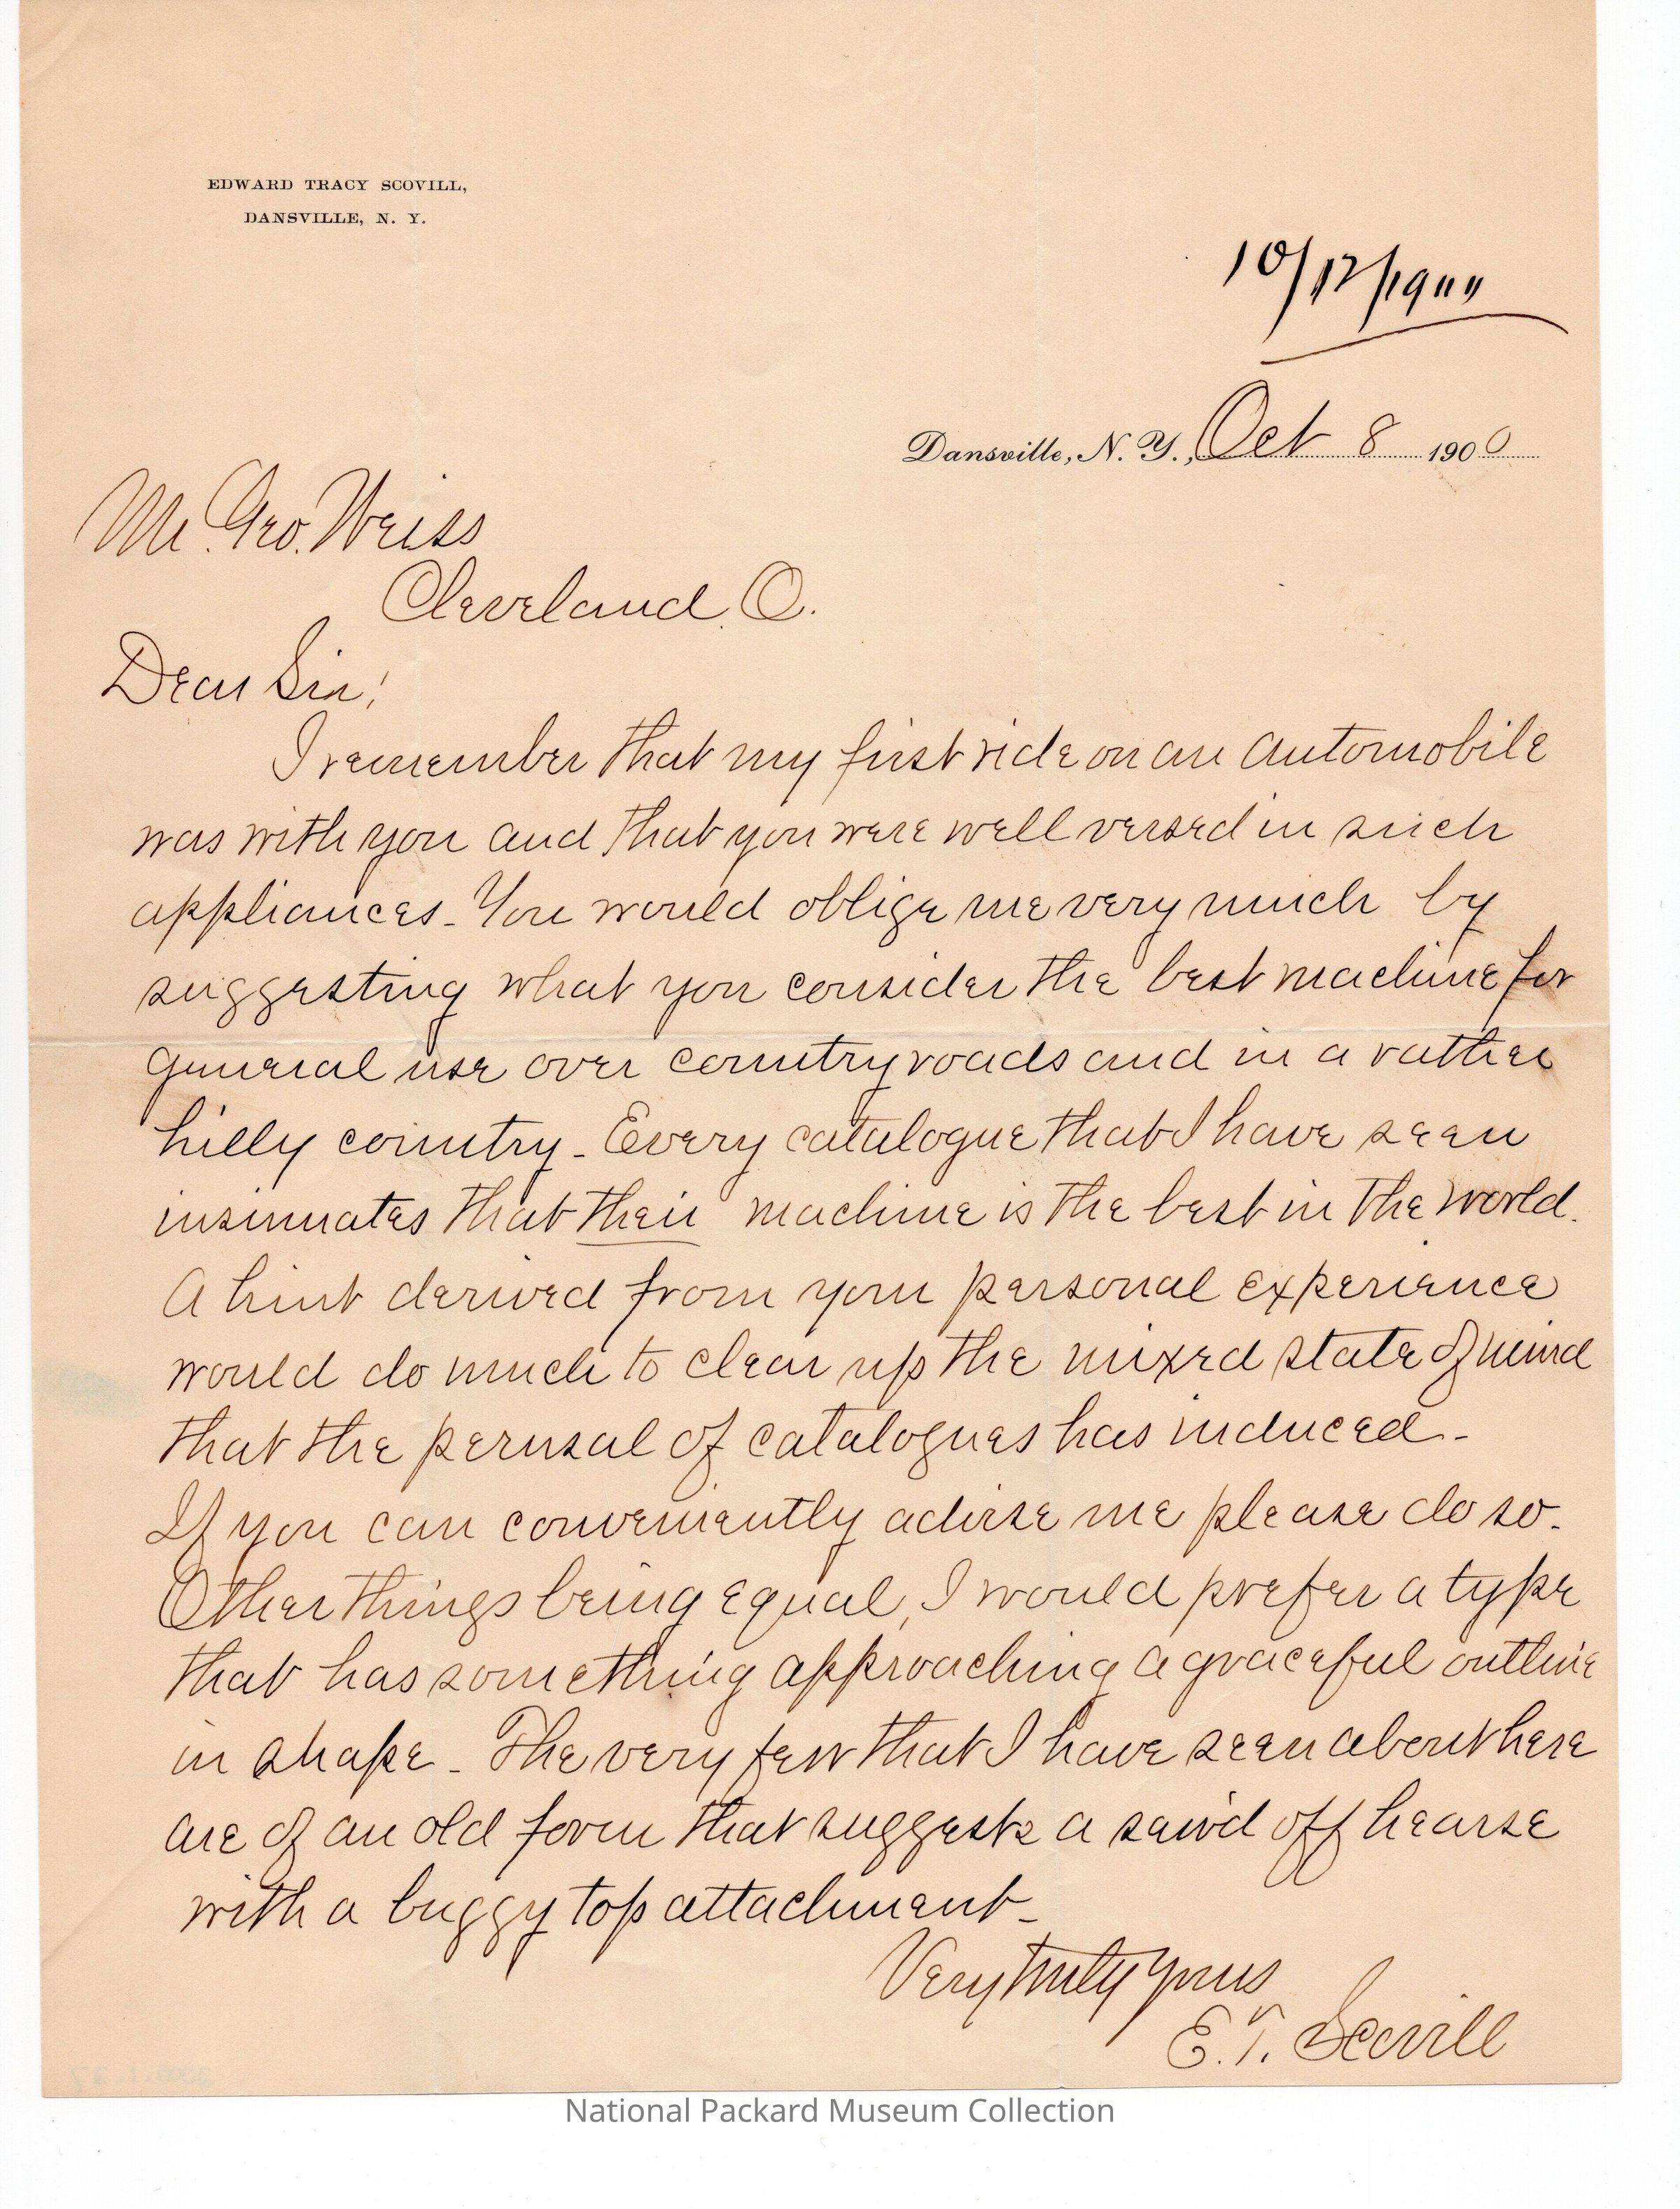 EDWARD TRACY SCOVILL,
DANSVILLE, N. Y.
10/12/1900
Dansville, N. Y., Oct 8 1900
Mr. Geo. Weiss
Cleveland, O.
Dear Sir:
I remember that my first ride on an automobile
was with you and that you were well versed in such
appliances - You would oblige me very much by
suggesting what you consider the best machine for
general use over country roads and in a rather
hilly country - Every catalogue that I have seen
insinuates that their machine is the best in the world.
A hint derived from your personal experience
would do much to clear up the mixed state of mind
that the perusal of catalogues has induced -
If you can conveniently advise me please do so.
Other things being equal, I would prefer a type
that has something approaching a graceful outline
in shape - The very few that I have seen about here
are of an old form that suggests a saw'd off hearse
with a buggy top attachment -
Very truly yours
E. T. Scovill
National Packard Museum Collection